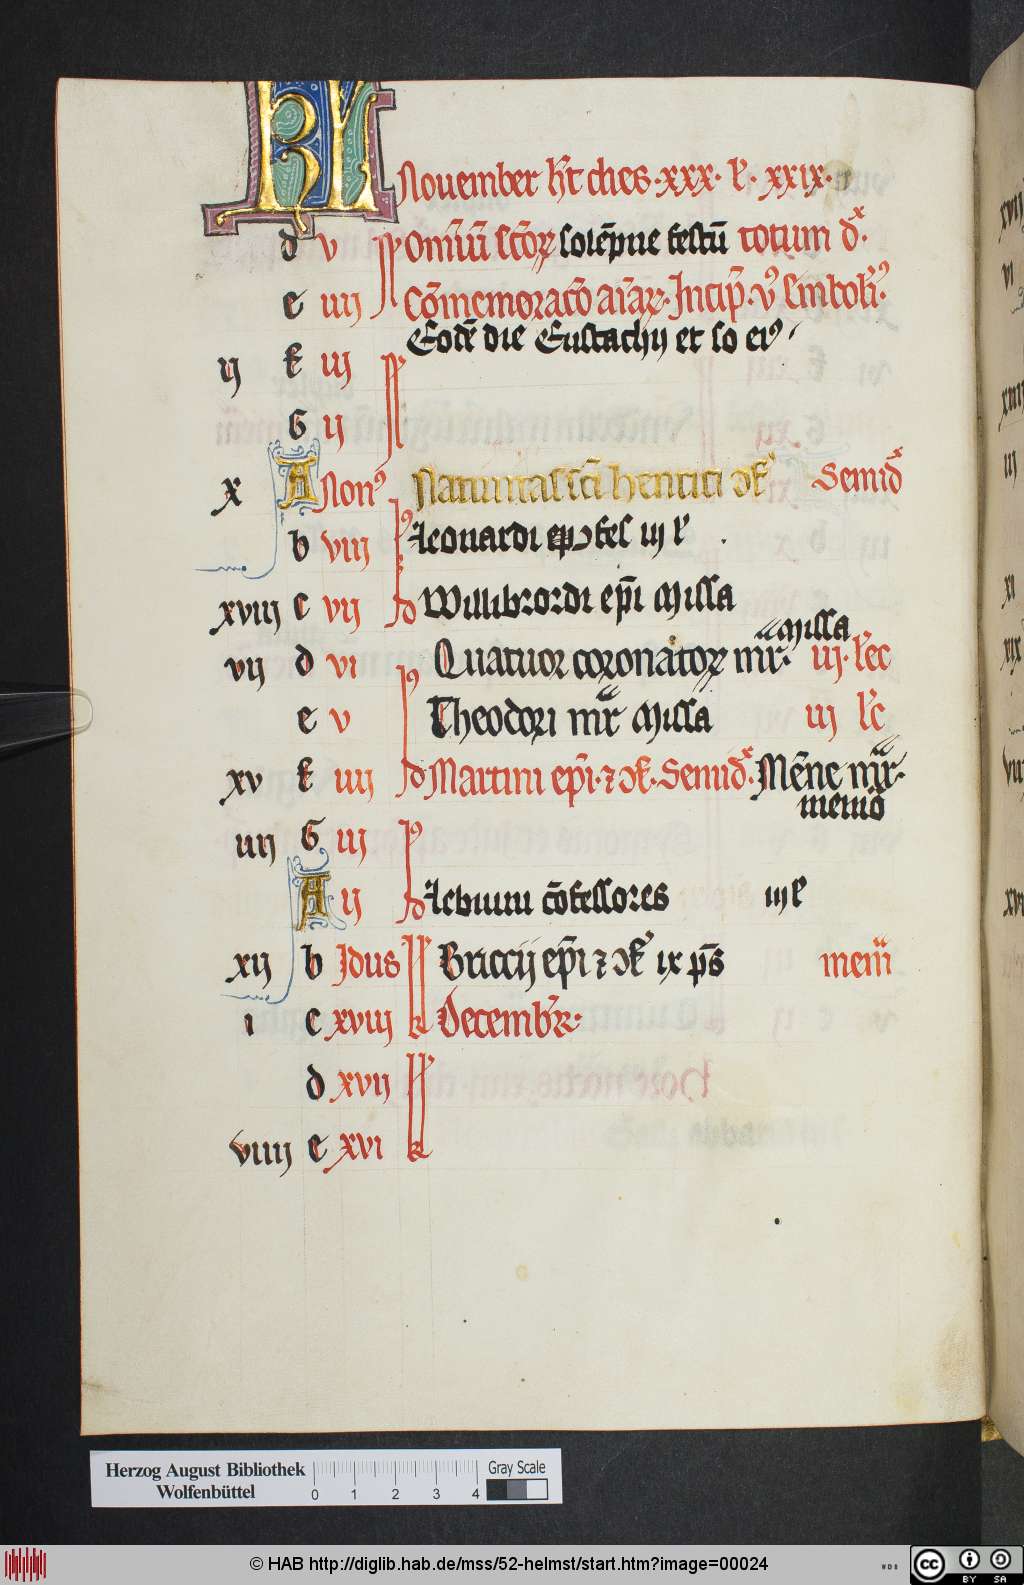 KL
Nouember ht dies ·xxx· l' · xxix·
d v Omiũ sctoꝝ solēpne festū totum dx.
e iiij Cōmemoratō aīaꝝ· Incip̄·
Eodē die Eustachij et so ei9
ij f iij
G ij
x A Non9 Natiuitas sc̄i henrici Semidx
b viij Leonardi fes iij l'
xviij c vij Willibrordi ep̄i Missa
Missa
vij d vi Quatuor coronatoꝝ mr̄· iij· l'ec
e v Theodori mr̄ Missa iij l'c
xv f iiij Martini ep̄i· Semidx· Mēne mr̄·
memō
iiij G iij
A ij Lebuini cōfessores iij l'
xij b Idus Briccij ep̄i ix p̄s mem̄
i c xviij Decemb'r·
d xvij
viiij e xvi
Herzog August Bibliothek
Wolfenbüttel
0 1 2 3 4
Gray Scale
© HAB http://diglib.hab.de/mss/52-helmst/start.htm?image=00024
WDB
cc BY SA